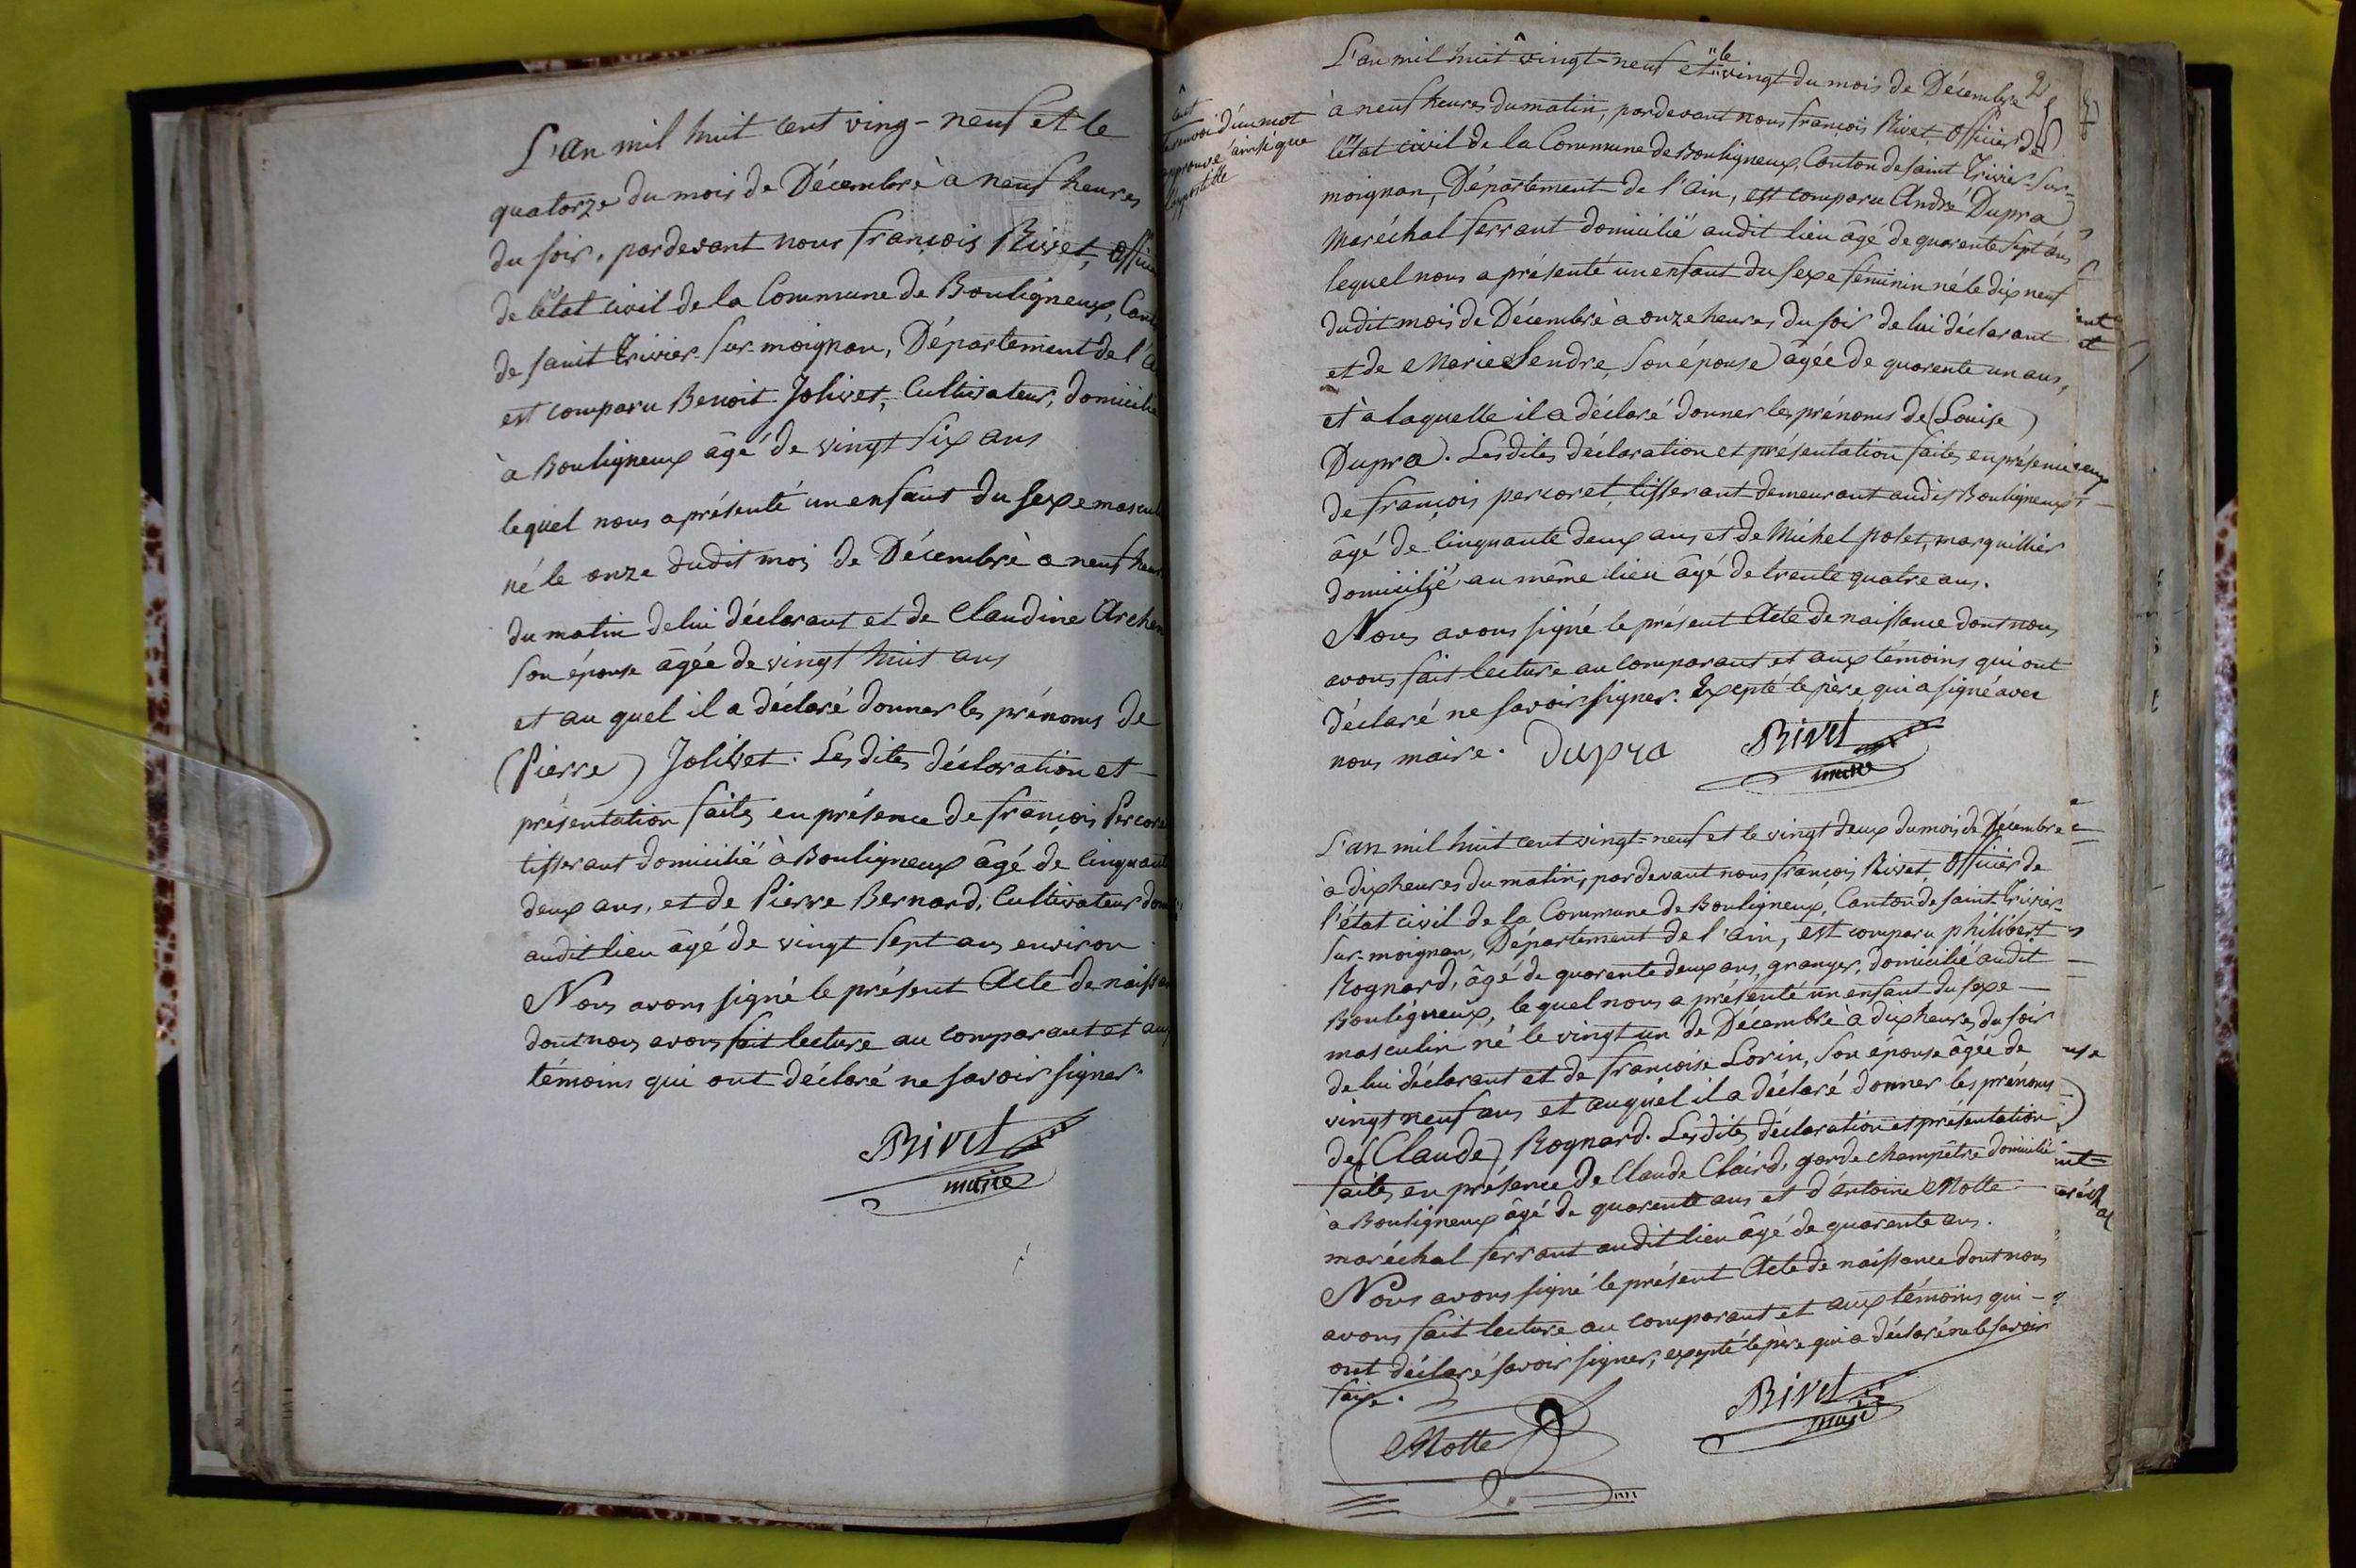 L'an mil huit cent ving-neuf et le
quatorze du mois de Décembre à neuf heures
du soir, pardevant nous françois Rivet, Offici
de l'état civil de la Commune de Bouligneux, Can
de saint Trivier-sur-moignan, Département de l'a
est comparu Benoit Jolivet, Cultivateur, domicilié
à Bouligneux âgé de vingt six ans
lequel nous a présenté un enfant du sexe mascul
né le onze dudit mois de Décembre à neuf heur
du matin de lui déclarant et de Claudine Archen
son épouse âgée de vingt huit ans
et au quel il a déclaré donner les prénoms de
(Pierre) Jolivet. Lesdites déclaration et
présentation faites en présence de françois Percore
tisserant domicilié à Bouligneux âgé de cinquant
deux ans, et de Pierre Bernard, Cultivateur dom
audit lieu âgé de vingt sept ans environ
Nous avons signé le présent Acte de naissan
dont nous avons fait lecture au comparant et aux
témoins qui ont déclaré ne savoir signer.
Rivet
maire
cent
renvoi d'un mot
approuvé ainsi que
L'an mil huit ^ vingt-neuf et "le vingt du mois de Décembre
2
à neuf heures du matin, pardevant nous françois Rivet, Officier de
l'état civil de la Commune de Bouligneux, Canton de saint Trivier-sur-
moignan, Département de l'ain, est comparu André Dupra
Maréchal ferrant domicilié audit lieu âgé de quarente sept ans
lequel nous a présenté un enfant du sexe féminin né le dix neuf
dudit mois de Décembre à onze heures du soir de lui déclarant
et de Marie Sendre, son épouse âgée de quarente un ans,
et à laquelle il a déclaré donner les prénoms de (Louise)
Dupra. Lesdites déclaration et présentation faites en présence
de françois percoret, tisserant demeurant audit Bouligneux
âgé de cinquante deux ans et de Michel polet, marguillier
domicilié au même lieu âgé de trente quatre ans.
Nous avons signé le présent Acte de naissance dont nous
avons fait lecture au comparant et aux témoins qui ont
déclaré ne savoir signer. Excepté le père qui a signé avec
nous maire. Dupra Rivet
maire
L'an mil huit cent vingt-neuf et le vingt deux du mois de Décembre
à dix heures du matin, pardevant nous françois Rivet, Officier de
l'état civil de la Commune de Bouligneux, Canton de saint-Trivier-
sur-moignan, Département de l'ain, est comparu philibert
Rognard, âgé de quarente deux ans, granger, domicilié audit
Bouligneux, lequel nous a présenté un enfant du sexe
masculin né le vingt un de Décembre à dix heures du soir
de lui déclarant et de françoise Lorin, son épouse âgée de
vingt neuf ans et auquel il a déclaré donner les prénoms
de (Claude) Rognard. Lesdites déclaration et présentation
faites en présence de Claude Claird, garde champêtre domicilié
à Bouligneux âgé de quarente ans et d'antoine Motte
maréchal ferrant audit lieu âgé de quarente ans.
Nous avons signé le présent Acte de naissance dont nous
avons fait lecture au comparant et aux témoins qui
ont déclaré savoir signer, excepté le père qui a déclaré ne le savoir
faire.
Motte
Rivet
maire